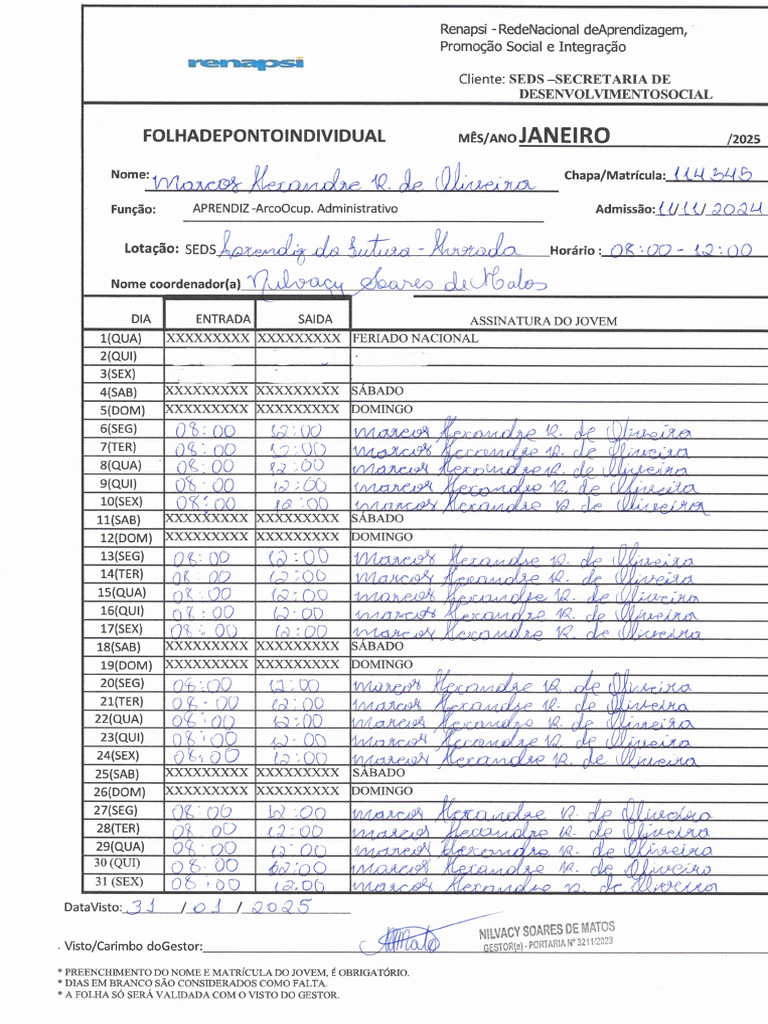 Renapsi - RedeNacional deAprendizagem,
Promoção Social e Integração
renapsi
Cliente: SEDS –SECRETARIA DE
DESENVOLVIMENTOSOCIAL
FOLHADEPONTOINDIVIDUAL MÊS/ANO JANEIRO /2025
Nome: Marcos Alexandre R. de Oliveira Chapa/Matrícula: 114345
Função: APRENDIZ -ArcoOcup. Administrativo Admissão: 11/11/2024
Lotação: SEDS Aprendiz do Futuro - Alvorada Horário : 08:00 - 12:00
Nome coordenador(a) Nilvacy Soares de Matos
DIA ENTRADA SAIDA ASSINATURA DO JOVEM
1(QUA) XXXXXXXXX XXXXXXXXX FERIADO NACIONAL
2(QUI)
3(SEX)
4(SAB) XXXXXXXXX XXXXXXXXX SÁBADO
5(DOM) XXXXXXXXX XXXXXXXXX DOMINGO
6(SEG) 08:00 12:00 Marcos Alexandre R. de Oliveira
7(TER) 08:00 12:00 Marcos Alexandre R. de Oliveira
8(QUA) 08:00 12:00 Marcos Alexandre R. de Oliveira
9(QUI) 08:00 12:00 Marcos Alexandre R. de Oliveira
10(SEX) 08:00 12:00 Marcos Alexandre R. de Oliveira
11(SAB) XXXXXXXXX XXXXXXXXX SÁBADO
12(DOM) XXXXXXXXX XXXXXXXXX DOMINGO
13(SEG) 08:00 12:00 Marcos Alexandre R. de Oliveira
14(TER) 08:00 12:00 Marcos Alexandre R. de Oliveira
15(QUA) 08:00 12:00 Marcos Alexandre R. de Oliveira
16(QUI) 08:00 12:00 Marcos Alexandre R. de Oliveira
17(SEX) 08:00 12:00 Marcos Alexandre R. de Oliveira
18(SAB) XXXXXXXXX XXXXXXXXX SÁBADO
19(DOM) XXXXXXXXX XXXXXXXXX DOMINGO
20(SEG) 08:00 12:00 Marcos Alexandre R. de Oliveira
21(TER) 08:00 12:00 Marcos Alexandre R. de Oliveira
22(QUA) 08:00 12:00 Marcos Alexandre R. de Oliveira
23(QUI) 08:00 12:00 Marcos Alexandre R. de Oliveira
24(SEX) 08:00 12:00 Marcos Alexandre R. de Oliveira
25(SAB) XXXXXXXXX XXXXXXXXX SÁBADO
26(DOM) XXXXXXXXX XXXXXXXXX DOMINGO
27(SEG) 08:00 12:00 Marcos Alexandre R. de Oliveira
28(TER) 08:00 12:00 Marcos Alexandre R. de Oliveira
29(QUA) 08:00 12:00 Marcos Alexandre R. de Oliveira
30 (QUI) 08:00 12:00 Marcos Alexandre R. de Oliveira
31 (SEX) 08:00 12:00 Marcos Alexandre R. de Oliveira
DataVisto: 31 / 01 / 2025
Visto/Carimbo doGestor: NILVACY SOARES DE MATOS
GESTOR(a) - PORTARIA Nº 3211/2023
* PREENCHIMENTO DO NOME E MATRÍCULA DO JOVEM, É OBRIGATÓRIO.
* DIAS EM BRANCO SÃO CONSIDERADOS COMO FALTA.
* A FOLHA SÓ SERÁ VALIDADA COM O VISTO DO GESTOR.